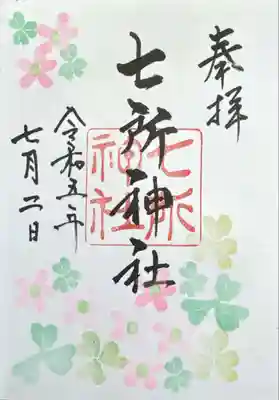 奉拝
七所神社
七所神社
令和五年
七月二日